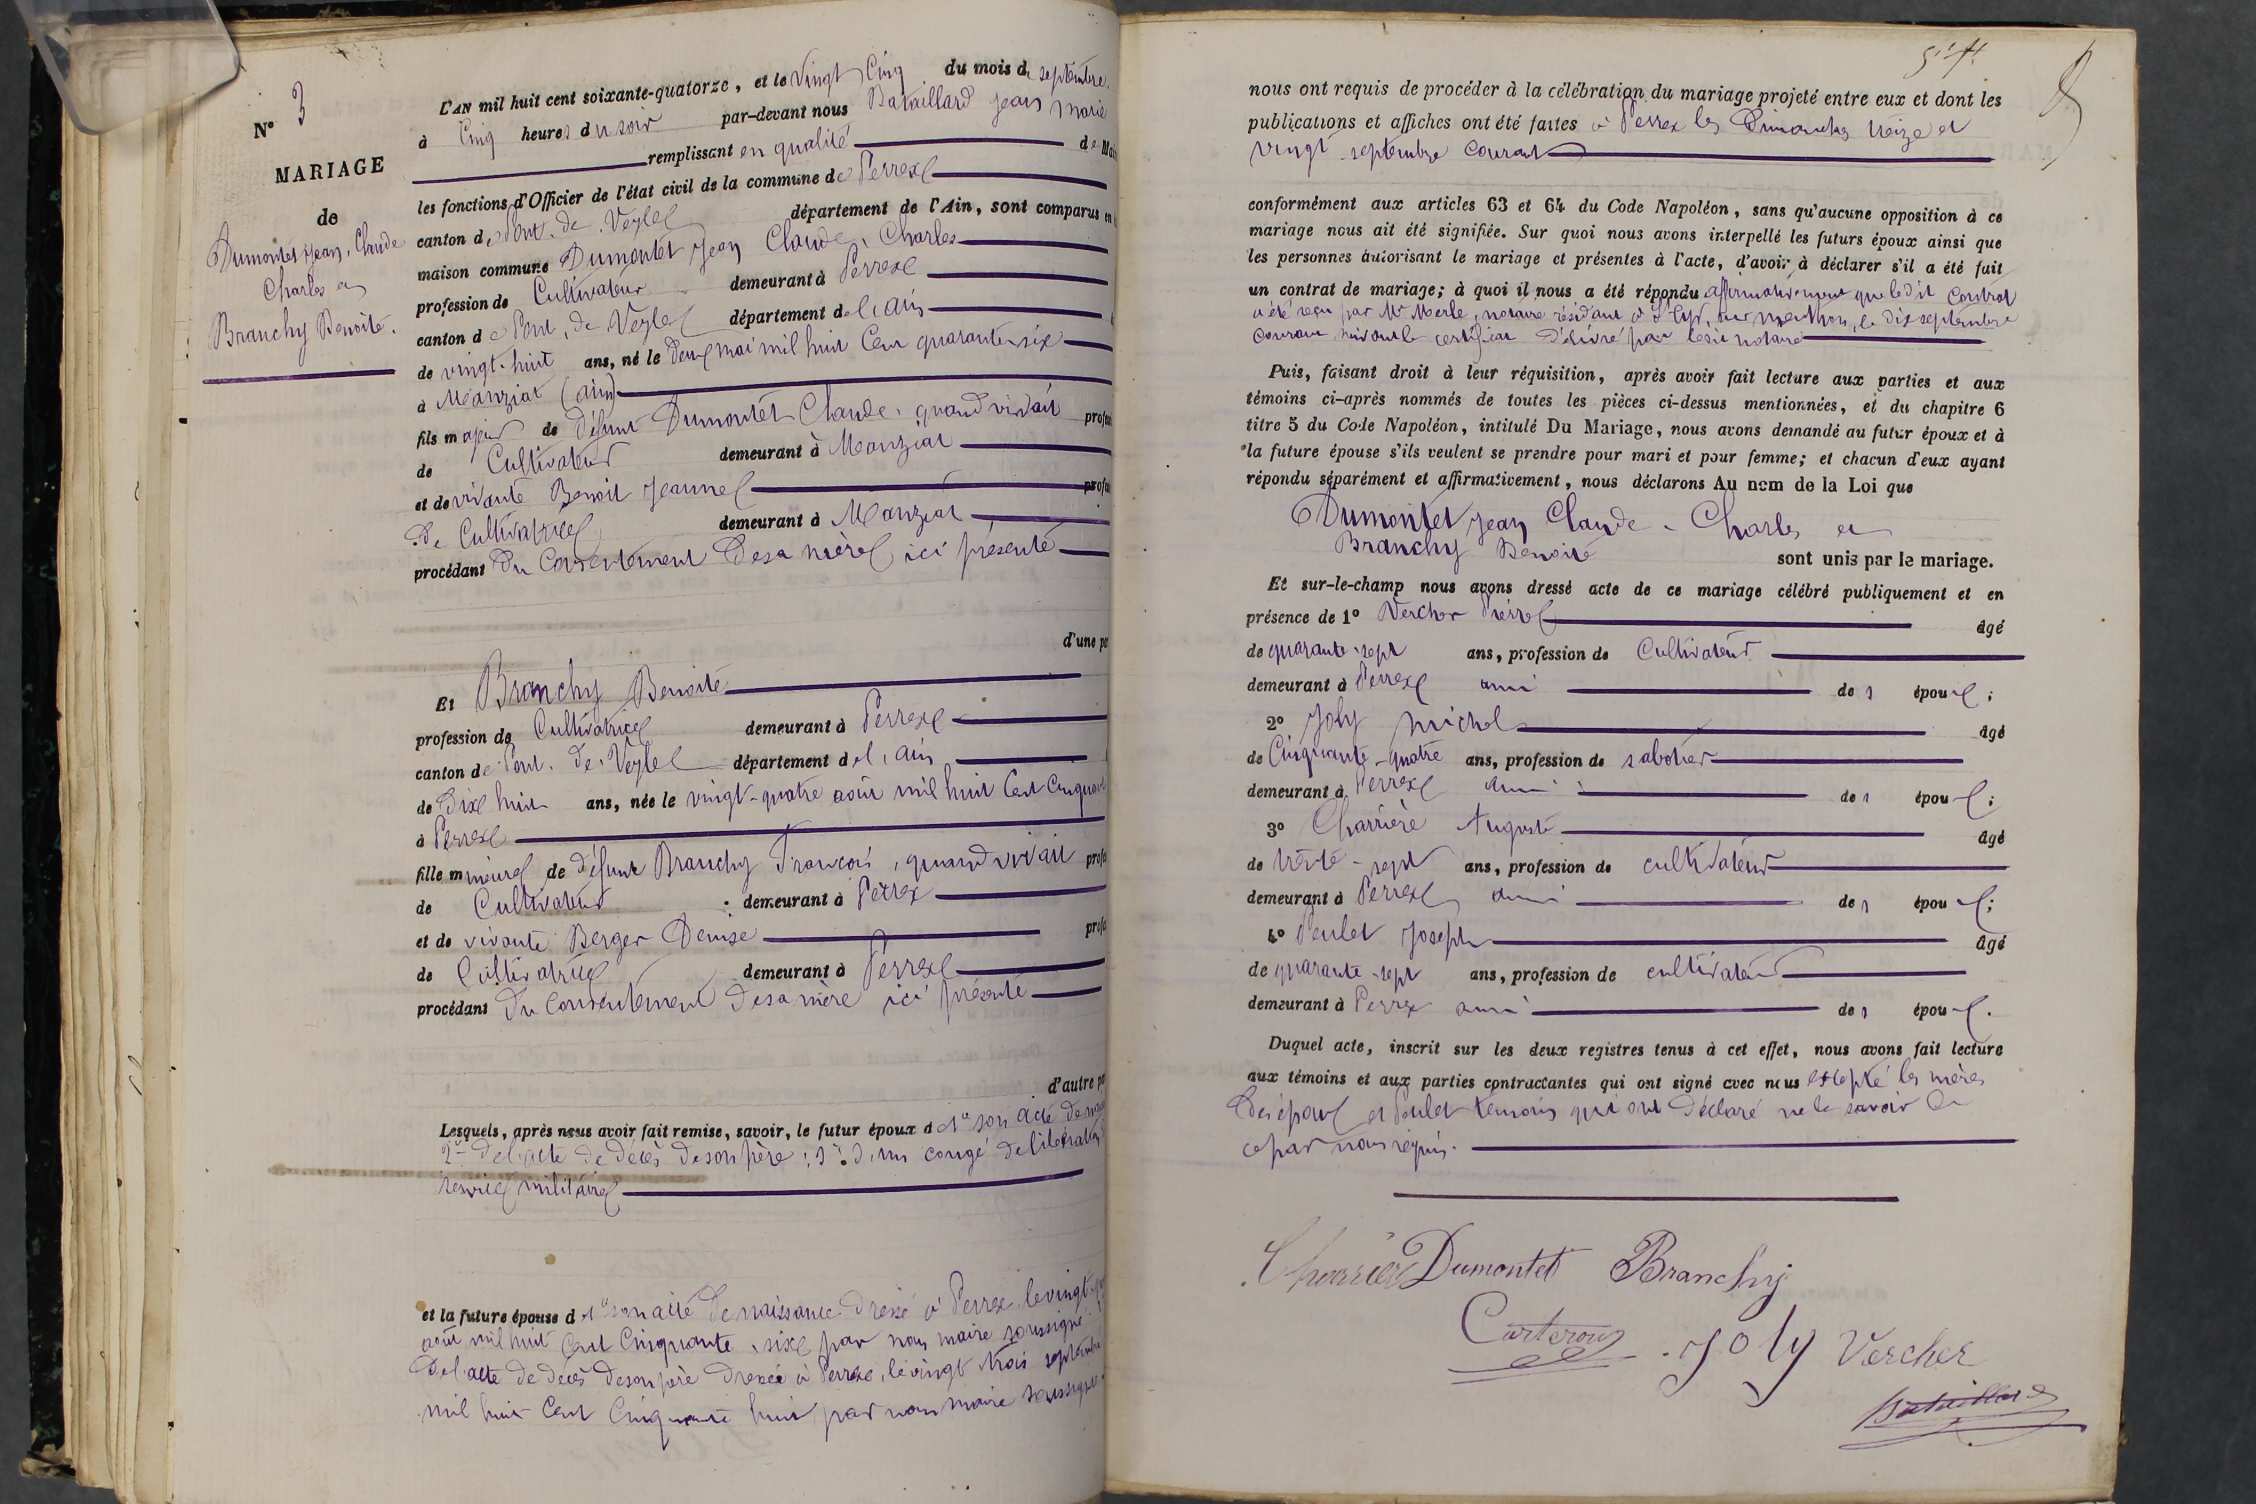 N° 3
MARIAGE
de
Dumontet Jean, Claude
Charles et
Branchy Benoite.
L'AN mil huit cent soixante-quatorze, et le Vingt Cinq du mois de septembre
à Cinq heures du soir par-devant nous Bataillard Jean Marie
remplissant en qualité de Mai
les fonctions d'Officier de l'état civil de la commune de Perrex
canton de Pont. de. Veyle département de l'Ain, sont comparus en
maison commune Dumontet Jean Claude, Charles
profession de Cultivateur demeurant à Perrex
canton de Pont, de Veyle département de l'ain
de vingt-huit ans, né le deux mai mil huit Cent quarante six
à Manziat (ain)
fils majeur de défunt Dumontet Claude, quand vivait profe
de Cultivateur demeurant à Manziat
et de vivante Benoit Jeanne profe
de Cultivatrice demeurant à Manziat
procédant du Consentement de sa mère ici présente
d'une pa
Et Branchy Benoite
profession de Cultivatrice demeurant à Perrex
canton de Pont. de. Veyle département de l'ain
de Dix huit ans, née le vingt-quatre août mil huit Cent Cinquante
à Perrex
fille mineure de défunt Branchy François, quand vivait profe
de Cultivateur demeurant à Perrex
et de vivante Berger Denise profe
de Cultivatrice demeurant à Perrex
procédant du Consentement de sa mère ici présente
d'autre pa
Lesquels, après nous avoir fait remise, savoir, le futur époux d 1° son acte de
2° de l'acte de décès de son père; 3° d'un congé de libération
service militaire
et la future épouse d 1° son acte de naissance dressé à Perrex le vingt
août mil huit Cent Cinquante six par nous maire soussigné
de l'acte de décès de son père dressé à Perrex, le vingt trois septembre
mil huit Cent Cinquante huit par nous maire soussigné
nous ont requis de procéder à la célébration du mariage projeté entre eux et dont les
publications et affiches ont été faites à Perrex les Dimanches treize et
vingt septembre Courant
conformément aux articles 63 et 64 du Code Napoléon, sans qu'aucune opposition à ce
mariage nous ait été signifiée. Sur quoi nous avons interpellé les futurs époux ainsi que
les personnes autorisant le mariage et présentes à l'acte, d'avoir à déclarer s'il a été fait
un contrat de mariage; à quoi il nous a été répondu affirmativement que ledit Contrat
a été reçu par Mr Merle, notaire résidant à St Cyr, sur menthon, le dix septembre
courant suivant le certificat délivré par ledit notaire
Puis, faisant droit à leur réquisition, après avoir fait lecture aux parties et aux
témoins ci-après nommés de toutes les pièces ci-dessus mentionnées, et du chapitre 6
titre 5 du Code Napoléon, intitulé Du Mariage, nous avons demandé au futur époux et à
la future épouse s'ils veulent se prendre pour mari et pour femme; et chacun d'eux ayant
répondu séparément et affirmativement, nous déclarons Au nom de la Loi que
Dumontet Jean Claude - Charles et
Branchy Benoite sont unis par le mariage.
Et sur-le-champ nous avons dressé acte de ce mariage célébré publiquement et en
présence de 1° Vercher Pierre âgé
de quarante-sept ans, profession de Cultivateur
demeurant à Perrex ami des époux;
2° Joly Michel âgé
de Cinquante-quatre ans, profession de sabotier
demeurant à Perrex ami des époux;
3° Charrière Auguste âgé
de trente-sept ans, profession de cultivateur
demeurant à Perrex ami des époux;
4° Poulet Joseph âgé
de quarante-sept ans, profession de cultivateur
demeurant à Perrex ami des époux.
Duquel acte, inscrit sur les deux registres tenus à cet effet, nous avons fait lecture
aux témoins et aux parties contractantes qui ont signé avec nous excepté les mères
des époux et Poulet témoin qui ont déclaré ne le savoir de
ce par nous requis.
Charrière Dumontet Branchy
Carteron Joly Vercher
Bataillard